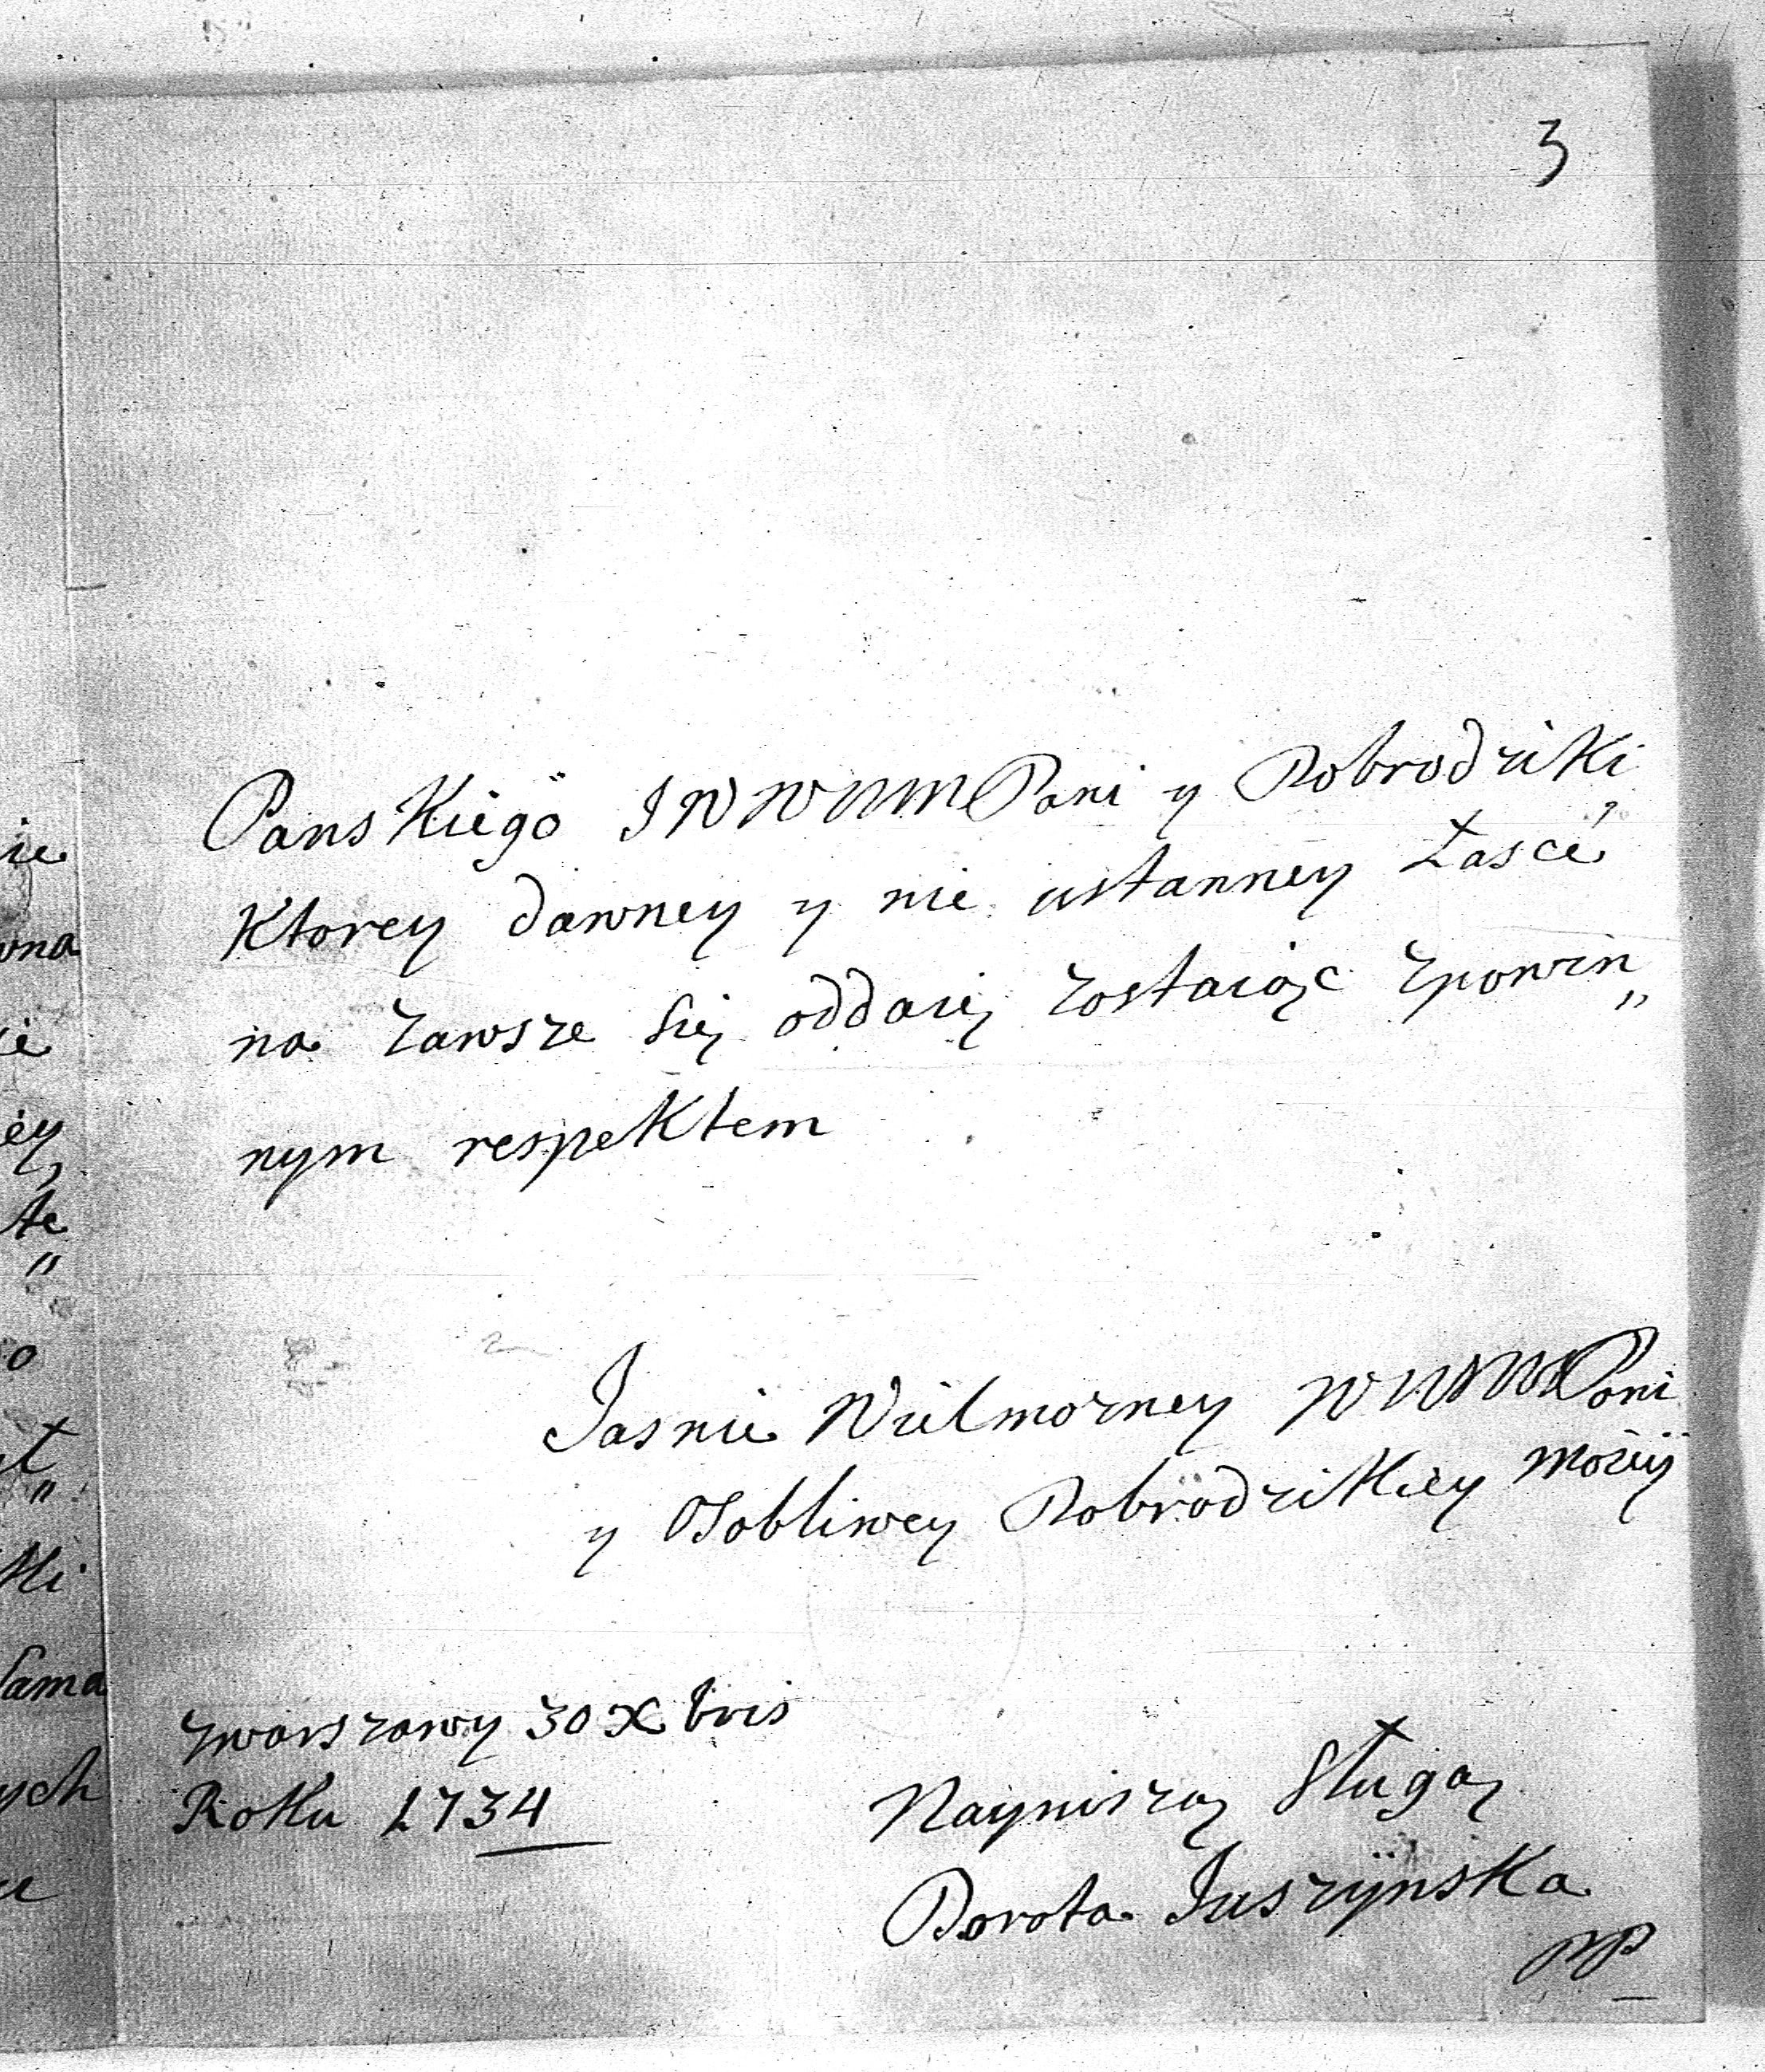 3
Panskiego J W W M M Pani y Dobrodziki
Ktorey dawney y nie ustanney Łasce
na zawsze się oddaię zostaiąc zpowin„
nym respektem
Jasnie Wielmozney W M M Pani
y Osobliwey Dobrodzikiey moiey
zwarszawy 30 Xbris
Roku 1734
Nayniszą Sługą
Dorota Juszÿnska
mp